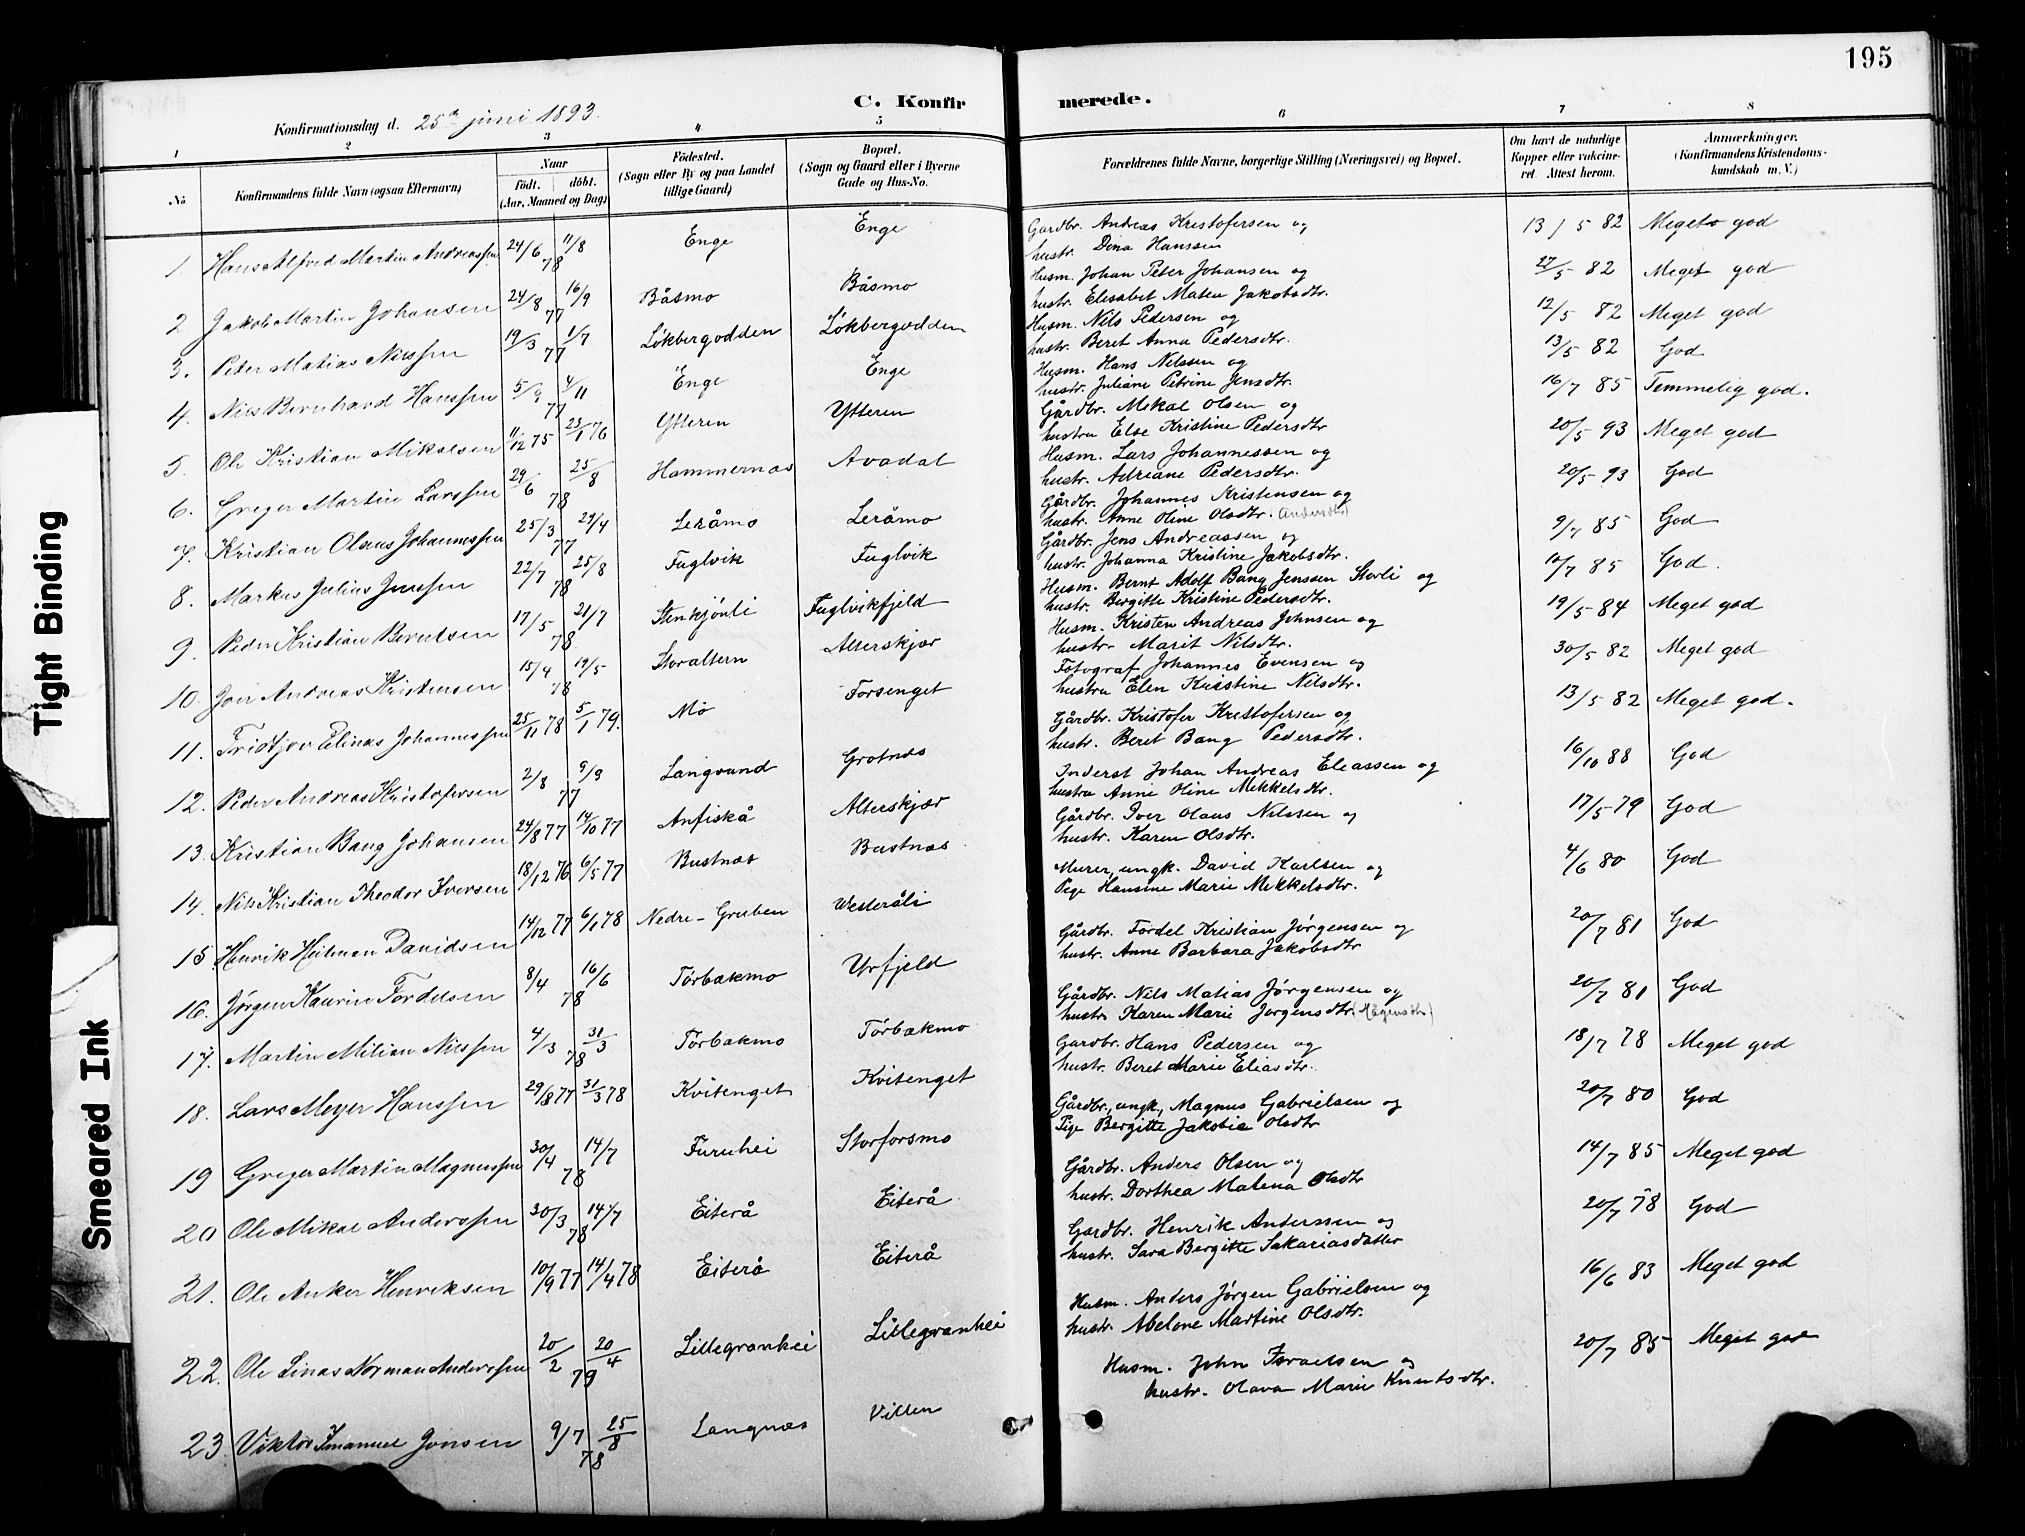 195
C. Konfir merede.
Konfirmationsdag d. 25de juni 1893.
1 2 3 4 5 6 7 8
No
Konfirmandens fulde Navn (ogsaa Efternavn)
Naar
födt. döbt.
(Aar, Maaned og Dag)
Födested.
(Sogn eller By og paa Landet
tillige Gaard)
Bopæl.
(Sogn og Gaard eller i Byerne
Gade og Hus-No.
Forældrenes fulde Navne, borgerlige Stilling (Næringsvei) og Bopæl.
Om havt de naturlige
Kopper eller vakcine-
ret. Attest herom.
Anmærkninger.
(Konfirmandens Kristendoms-
kundskab m. V.)
1. Hans Alfred Martin Andreassen 24/6 11/8 78 Enge Enge Gardbr. Andreas Kristofersen og
hustr. Dina Hanssen 13/5 82 Meget god
2. Jakob Martin Johansen 24/8 16/9 77 Båsmo Båsmo Husm. Johan Peter Johansen og
hustr. Elisabet Maten Jakobsdtr. 27/5 82 Meget god
3. Peter Matias Nilssen 19/3 1/7 77 Lökbergodden Lökbergodden Husm. Nils Pedersen og
hustr. Beret Anna Pedersdtr. 12/5 82 Meget god
4. Nils Bernhard Hanssen 5/9 4/11 77 Enge Enge Husm. Hans Nilssen og
hustr. Juliane Petrine Jensdtr. 13/5 82 God
5. Ole Kristian Mikalsen 11/12 75 23/1 76 Ytteren Ytteren Gårdbr. Mikal Olsen og
hustru Else Kristine Pedersdtr 16/7 85 Temmelig god.
6. Greger Martin Larssen 29/6 25/8 78 Hammernæs Avadal Husm. Lars Johannessen og
hustr. Adriane Pedersdtr. 20/5 93 Meget god
7. Kristian Olaus Johannessen 25/3 29/4 77 Leråmo Leråmo Gårdbr. Johannes Kristensen og
hustr. Anne Oline Olsdtr. (Andersdtr) 20/5 93 God
8. Markus Julius Jenssen 22/7 25/8 78 Fuglvik Fuglvik Gårdbr. Jens Andreassen og
hustr. Johanna Kristine Jakobsdtr. 9/7 85 God
9. Peder Kristian Berntsen 17/5 21/7 78 Stenkjönli Fuglvikfjeld Husm. Bernt Adolf Bang Jenssen Storli og
hustr. Bergitte Kristine Pedersdtr. 10/7 85 God.
10. Jon Andreas Kristensen 15/4 19/5 78 Storaltern Alterskjær Husm. Kristen Andreas Johnsen og
hustr. Marit Nilsdtr. 19/5 84 Meget god
11. Fridtjov Elinas Johannessen 25/11 78 5/1 79. Mo Forsenget Fotograf Johannes Evensen og
hustru Elen Kristine Nilsdtr. 30/5 82 Meget god
12. Peder Andreas Kristofersen 2/8 9/9 77 Langvand Grotnæs Gårdbr. Kristofer Kristofersen og
hustr. Beret Bang Pedersdtr. 13/5 82 Meget god.
13. Kristian Bang Johansen 24/8 77 14/10 77 Anfiskå Alterskjær Inderst Johan Andreas Eleassen og
hustru Anne Oline Mikkelsdtr. 16/10 88 God
14. Nils Kristian Theodor Iversen 18/12 76 6/5 77 Bustnæs Bustnæs Gårdbr. Iver Olaus Nilssen og
hustr. Karen Olsdtr. 17/5 79 God
15. Henrik Heitman Davidsen 14/12 77 6/1 78 Nedre-Gruben Westeråli Murer, ungk. David Karlsen og
Pige Hansine Marie Mikkelsdtr. 4/6 80 God
16. Jørgen Kaurin Fordelsen 8/4 16/6 78 Törbakmo Urfjeld Gårdbr. Fordel Kristian Jørgensen og
hustr. Anne Barbara Jakobsdtr 20/7 81 God
17. Martin Milian Nilssen 4/3 31/3 78 Törbakmo Törbakmo Gårdbr. Nils Matias Jørgensen og
hustr. Karen Marie Jørgensdtr. 20/7 81 God
18. Lars Meyer Hanssen 29/8 77 31/3 78 Kvitenget Kvitenget Gardbr. Hans Pedersen og
hustr. Beret Marie Eliasdtr. 18/7 78 Meget god
19 Greger Martin Magnussen 30/4 14/7 78 Furuhei Storforsmo Gårdbr., ungk., Magnus Gabrielsen og
Pige Bergitte Jakobia Olsdtr 20/7 80 God
20 Ole Mikal Anderssen 30/3 14/7 78 Eiterå Eiterå Gårdbr. Anders Olsen og
hustr. Dorthea Malena Olsdtr 14/7 85 Meget god
21. Ole Anker Henriksen 10/9 77 14/4 78 Eiterå Eiterå Gardbr. Henrik Anderssen og
hustr. Sara Bergitte Sakariasdatter 20/7 78 God
22. Ole Linas Norman Anderssen 20/2 20/4 79 Lillegranhei Lillegranhei Husm. Anders Jørgen Gabrielsen og
hustr. Abelone Martine Olsdtr. 16/6 83 Meget god
23. Viktor Imanuel Jonsen 9/7 25/8 78 Langnæs Villen Husm. John Israelsen og
hustr. Olava Marie Knutsdtr. 20/7 85 Meget god
Tight Binding
Smeared Ink